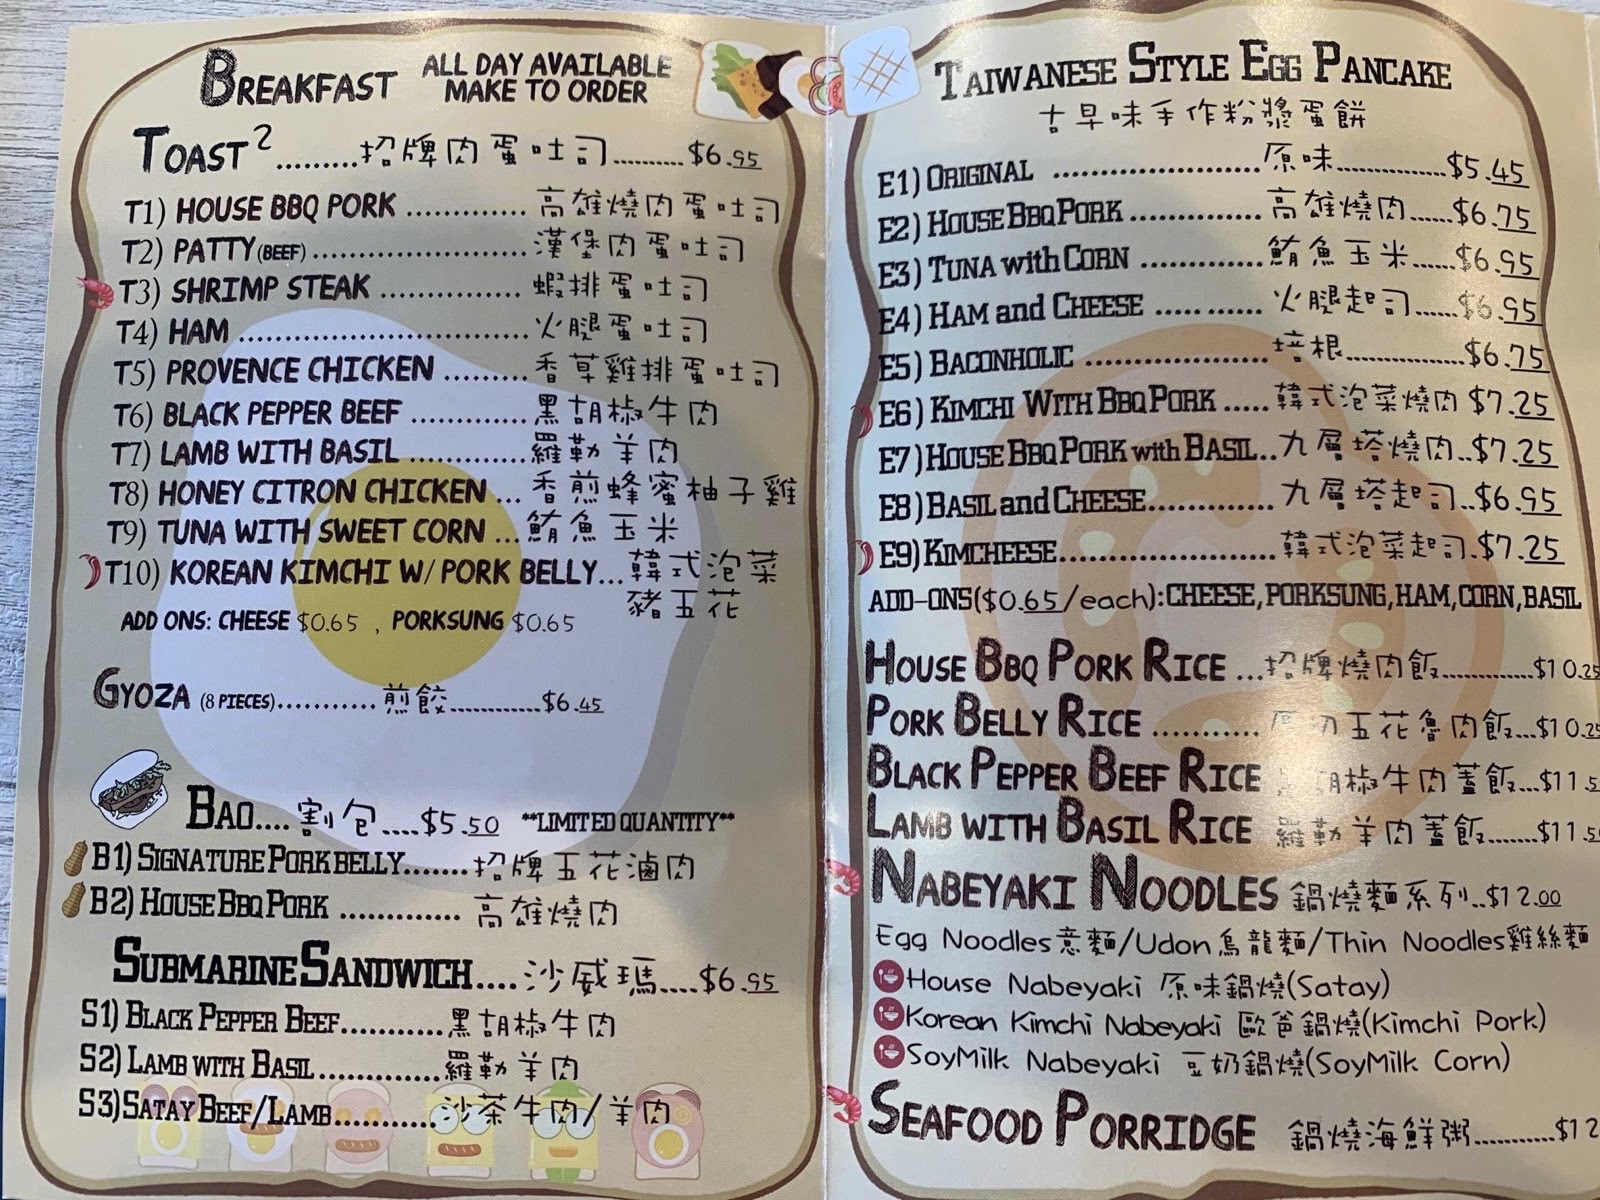 BREAKFAST ALL DAY AVAILABLE
MAKE TO ORDER
TOAST2.........招牌肉蛋吐司.........$6.95
T1) HOUSE BBQ PORK ............高雄燒肉蛋吐司
T2) PATTY(BEEF)......................漢堡肉蛋吐司
T3) SHRIMP STEAK ...............蝦排蛋吐司
T4) HAM ..............................火腿蛋吐司
T5) PROVENCE CHICKEN .........香草雞排蛋吐司
T6) BLACK PEPPER BEEF ............黑胡椒牛肉
T7) LAMB WITH BASIL ............羅勒羊肉
T8) HONEY CITRON CHICKEN ...香煎蜂蜜柚子雞
T9) TUNA WITH SWEET CORN ...鮪魚玉米
T10) KOREAN KIMCHI W/ PORK BELLY...韓式泡菜
豬五花
ADD ONS: CHEESE $0.65 , PORKSUNG $0.65
GYOZA (8 PIECES)...........煎餃...........$6.45
BAO....割包....$5.50 **LIMITED QUANTITY**
B1) SIGNATURE PORK BELLY.......招牌五花滷肉
B2) HOUSE BBQ PORK ............高雄燒肉
SUBMARINE SANDWICH....沙威瑪....$6.95
S1) BLACK PEPPER BEEF...........黑胡椒牛肉
S2) LAMB WITH BASIL.............羅勒羊肉
S3) SATAY BEEF/LAMB...........沙茶牛肉/羊肉
TAIWANESE STYLE EGG PANCAKE
古早味手作粉漿蛋餅
E1) ORIGINAL ......................原味..............$5.45
E2) HOUSE BBQ PORK..............高雄燒肉......$6.75
E3) TUNA with CORN .............鮪魚玉米......$6.95
E4) HAM and CHEESE ...........火腿起司......$6.95
E5) BACONHOLIC ...................培根...............$6.75
E6) KIMCHI WITH BBQ PORK .....韓式泡菜燒肉 $7.25
E7) HOUSE BBQ PORK with BASIL..九層塔燒肉..$7.25
E8) BASIL and CHEESE.............九層塔起司..$6.95
E9) KIMCHEESE.......................韓式泡菜起司.$7.25
ADD-ONS($0.65/each):CHEESE,PORKSUNG,HAM,CORN,BASIL
HOUSE BBQ PORK RICE ...招牌燒肉飯.............$10.25
PORK BELLY RICE ........... 厚切五花魯肉飯...$10.25
BLACK PEPPER BEEF RICE 黑胡椒牛肉蓋飯...$11.5
LAMB WITH BASIL RICE 羅勒羊肉蓋飯.......$11.5
NABEYAKI NOODLES 鍋燒麵系列..$12.00
Egg Noodles意麵/Udon烏龍麵/Thin Noodles雞絲麵
House Nabeyaki 原味鍋燒(Satay)
Korean Kimchi Nabeyaki 歐爸鍋燒(Kimchi Pork)
SoyMilk Nabeyaki 豆奶鍋燒(SoyMilk Corn)
SEAFOOD PORRIDGE 鍋燒海鮮粥...........$12